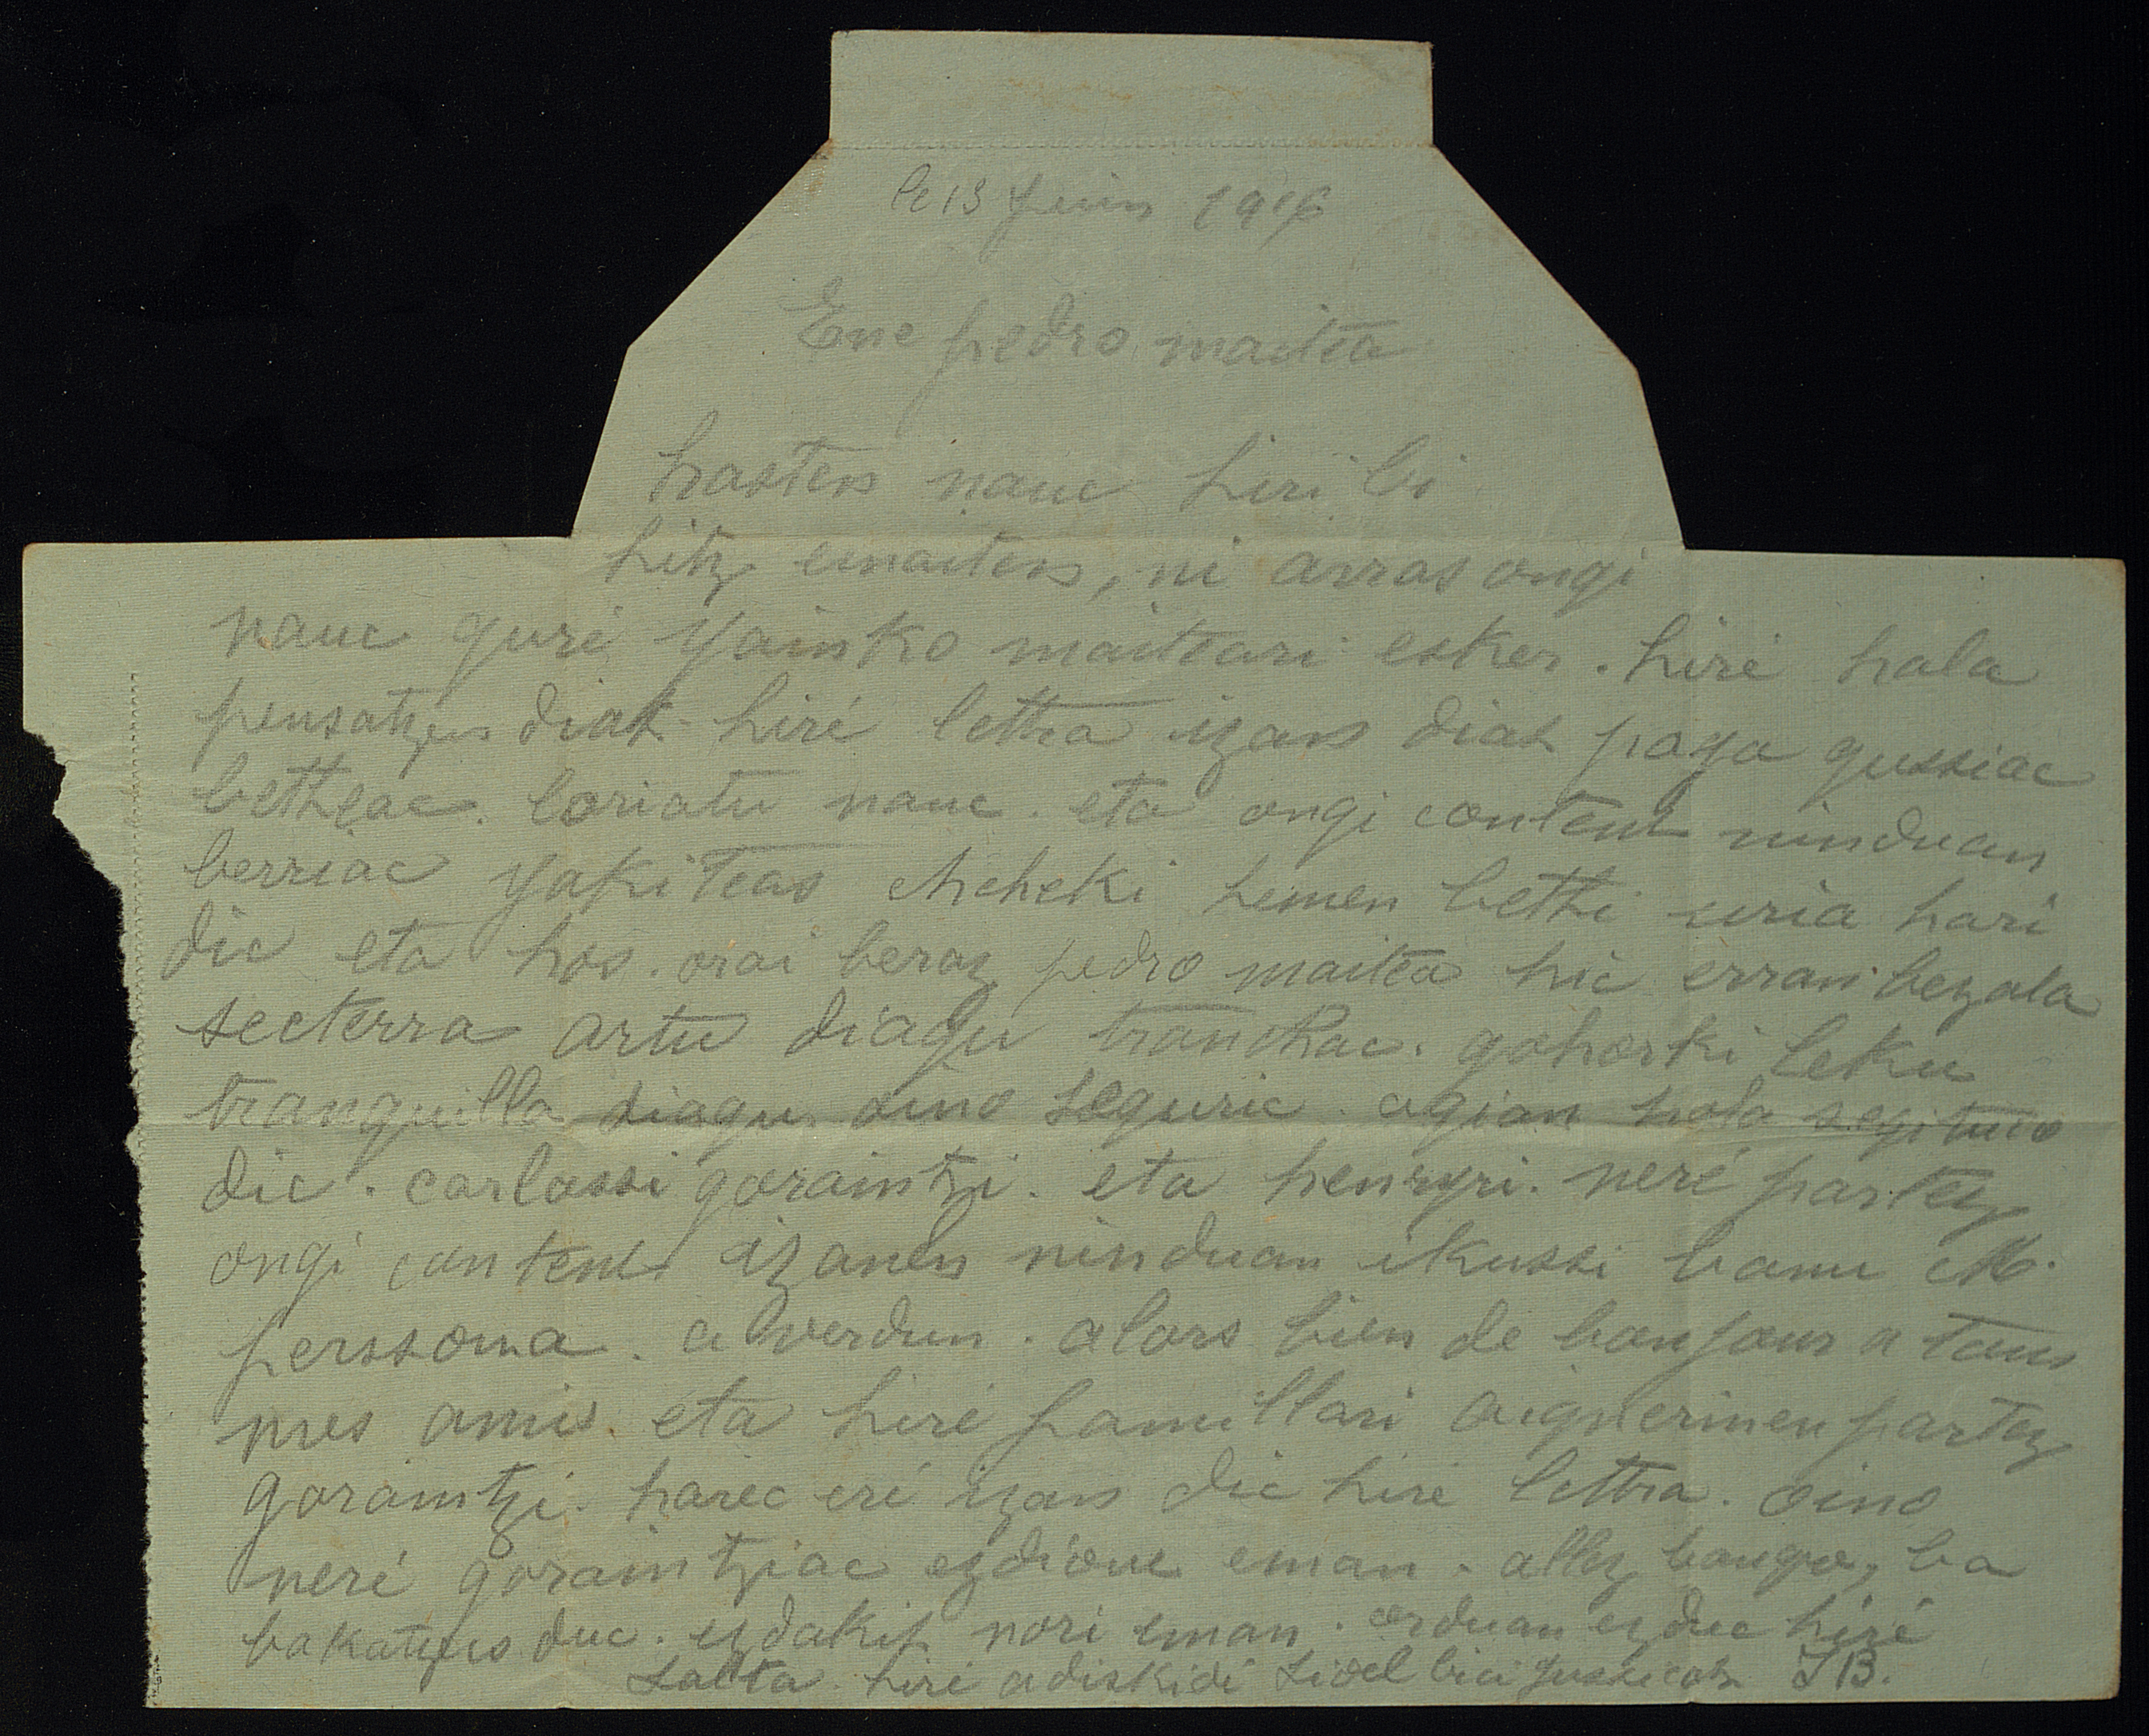 le 13 Juin 1916
Ene pedro maitea
hasten nauc hiri bi
hitz emaiten, ni arras ongi
nauc guré Yainko maiteari esker. hiré hala
pensatzen diat. hiré lettra izan diat paga gussiac
betheac. loriatu nauc. eta ongi content ninduan
berriac yakiteas chcheki hemen bethi uria hari
dic eta hos. orai beraz pedro maitea hic erran bezala
secterra artu diagu tranchac. gohorki leku
tranquilla diagu. oino seguric. agian hola segituco
dic. carlossi goraintzi. eta henryri. neré partez
ongi content izanen ninduan ikussi banu M.
perssona. a verdun. alors bien de bonjour a tous
mes amis. eta hiré familari partez
goraintzi. harec eré izan dic hiré lettra. oino
neré goraintziac ezdiouc eman. allez bango, ba
bakatzen duc. ezdakit nori eman. orduan ezduc hiré
hiré adiskidé fidel bici gussicotz J B.